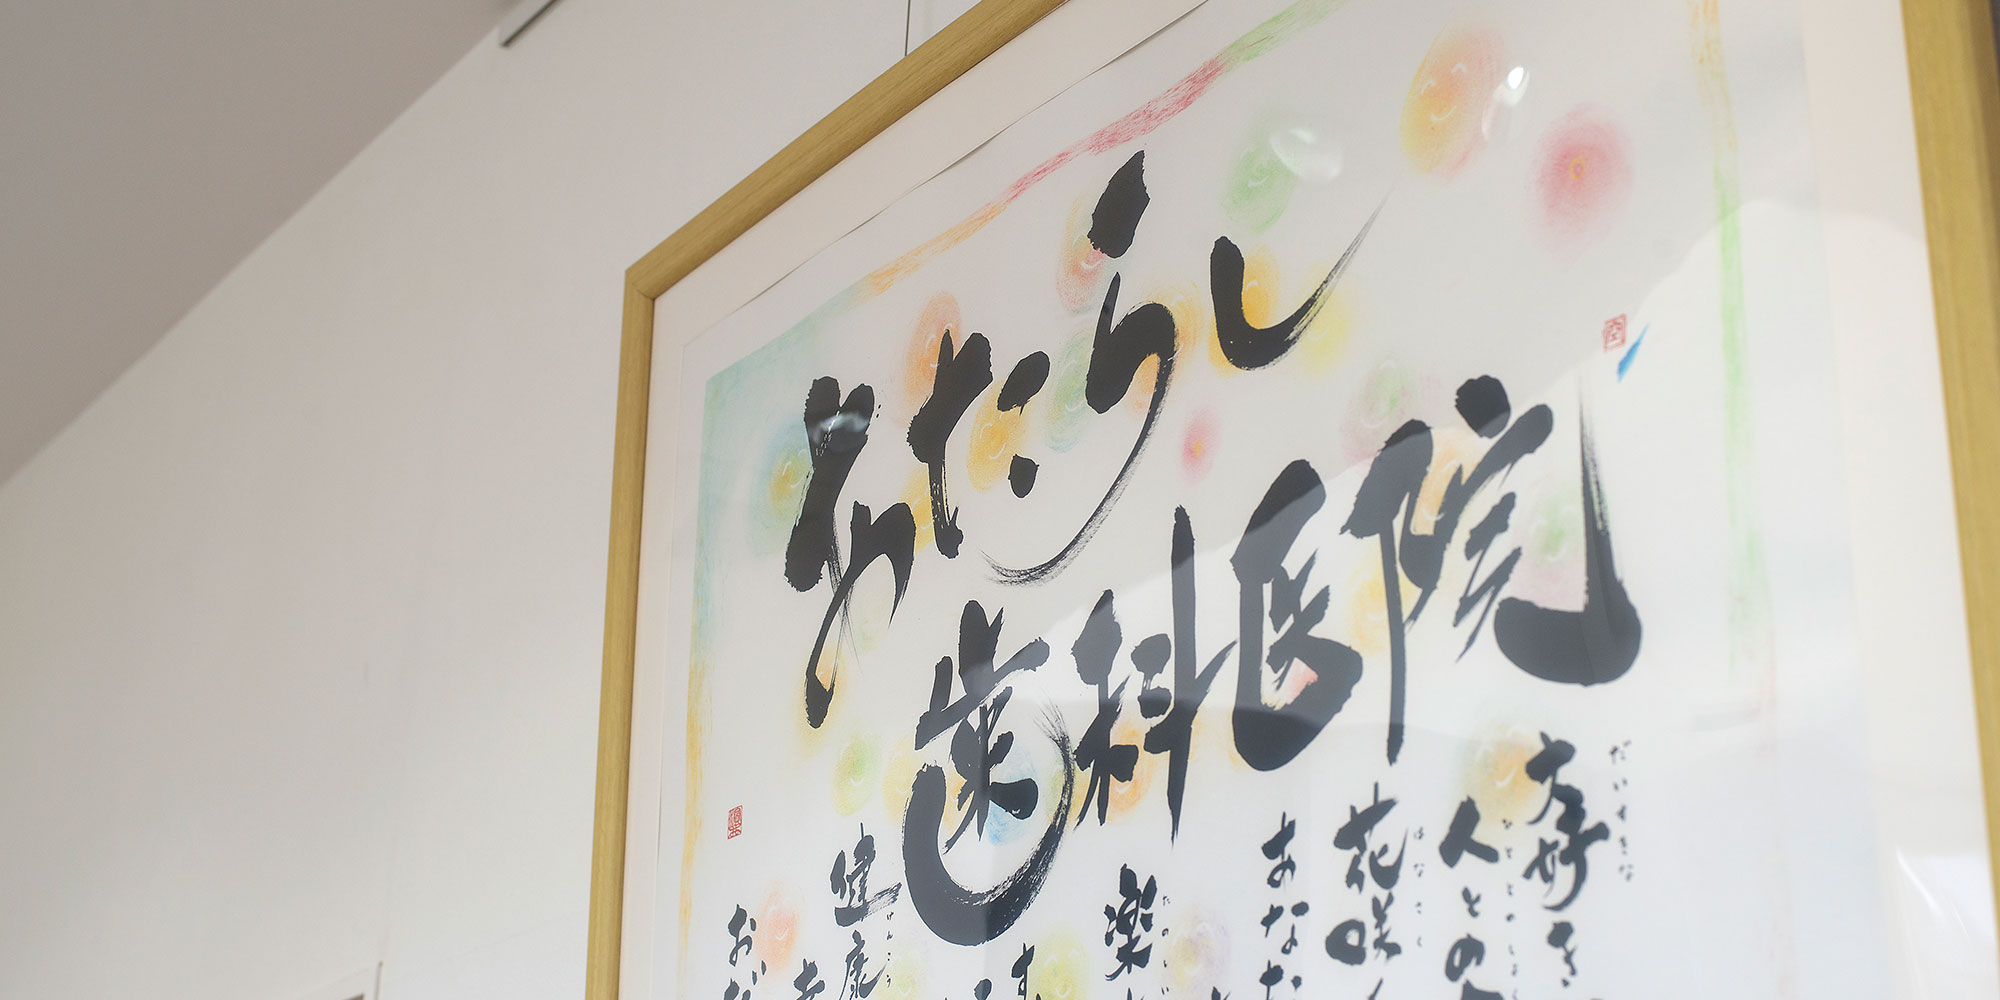 みたらし
歯科医院
大好き
だいすきな
人との
ひととのしょ
花咲
はなさく
あなた
楽
たのしい
す
健康
けんこう